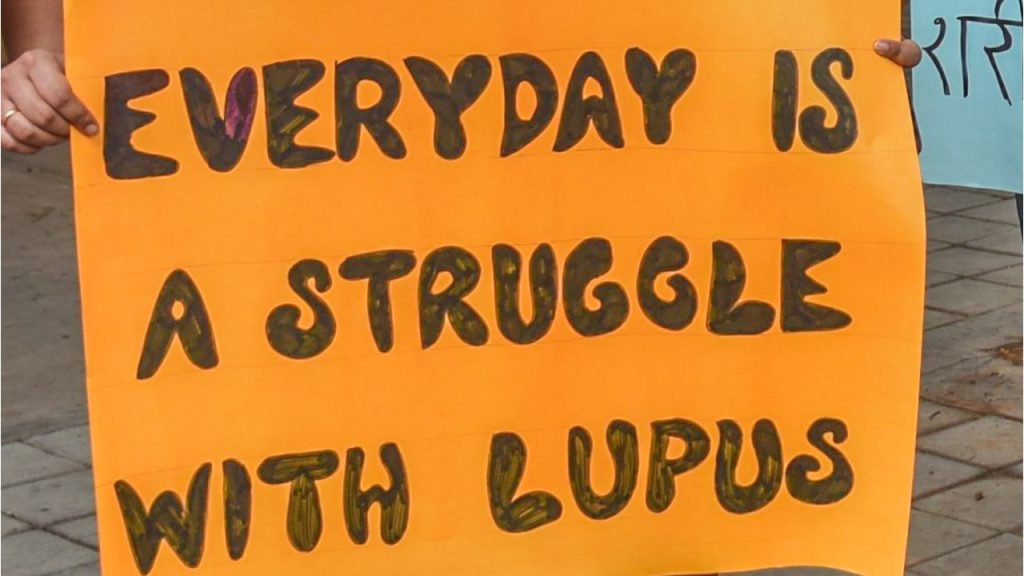 EVERYDAY IS
A STRUGGLE
WITH LUPUS